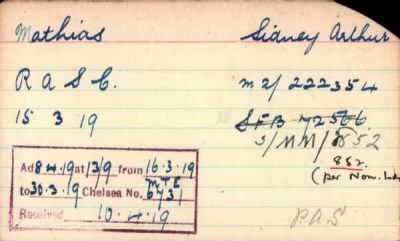 Mathias Sidney Arthur
R A S C. m2/ 222354
15 3 19 SFB 72566
3/MM/ 852
882.
(per Nom.
Ad 8·4·19 at 13/9 from 16·3·19
to 30·3·19 Chelsea No. 6731
MTE
Received 10·4·19
P.A.S